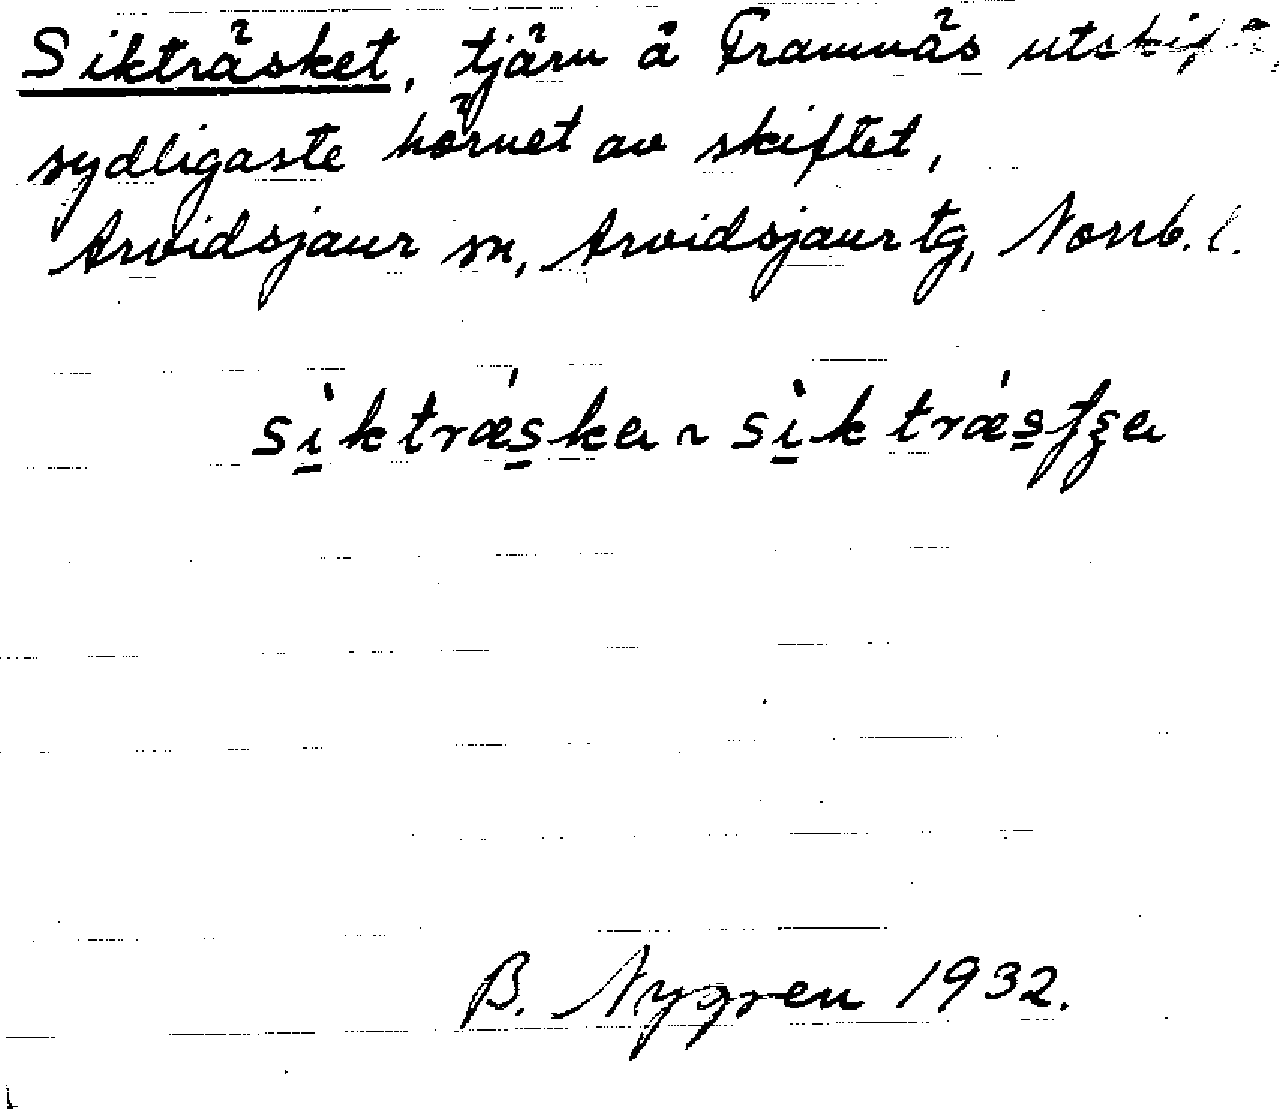 Sikträsket, tjärn å Framnäs utskifte,
sydligaste hörnet av skiftet,
Arvidsjaur sn, Arvidsjaur tg, Norrb. l.
sìktrǽska ~ sìktrǽsʃʒa
B. Nygren 1932.